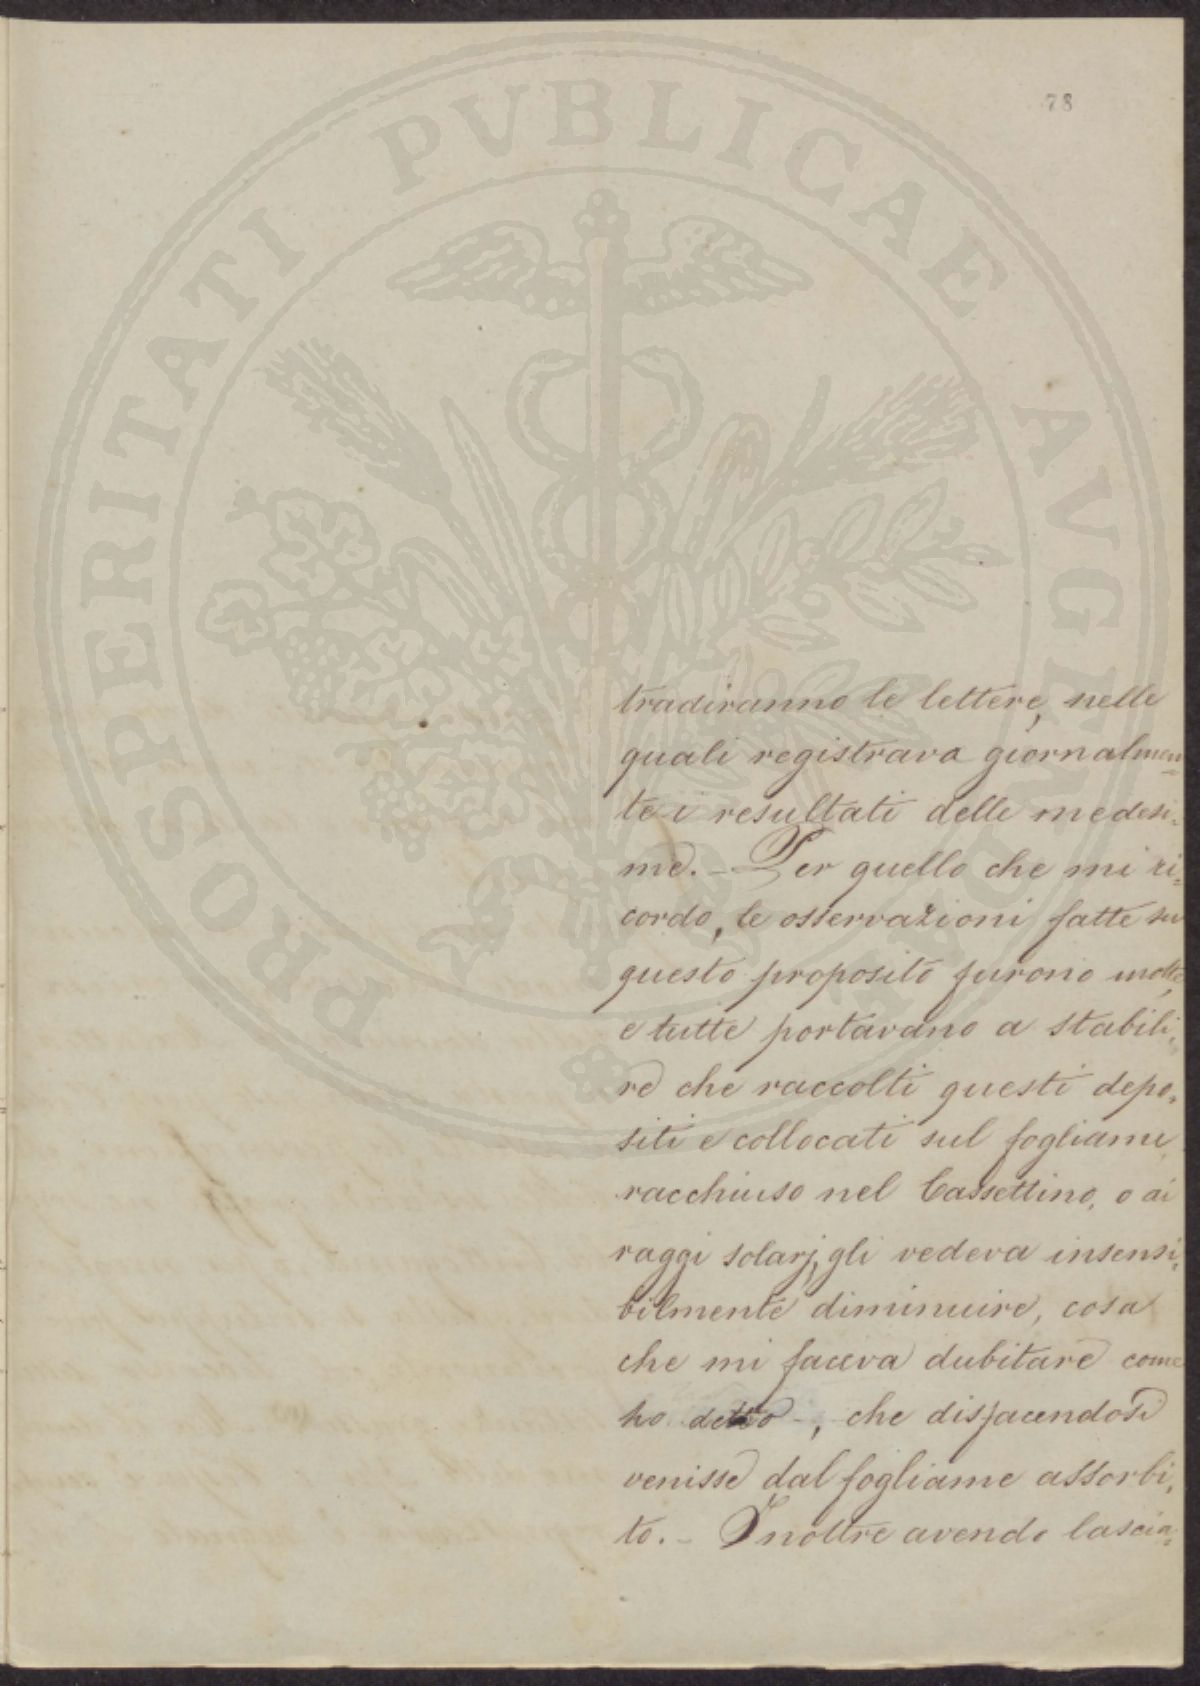 78
PROSPERITATI PVBLICAE AVGENDAE
tradiranno le lettere, nelle
quali registrava giornalmen=
te i resultati delle medesi=
me. - Per quello che mi ri=
cordo, le osservazioni fatte su
questo proposito furono molte,
e tutte portavano a stabili=
re che raccolti questi depo=
siti e collocati sul fogliame
racchiuso nel Cassettino, o ai
raggi solarj, gli vedeva insensi=
bilmente diminuire, cosa
che mi faceva dubitare come
ho detto -, che disfacendosi
venisse dal fogliame assorbi=
to. - Inoltre avendo lascia=